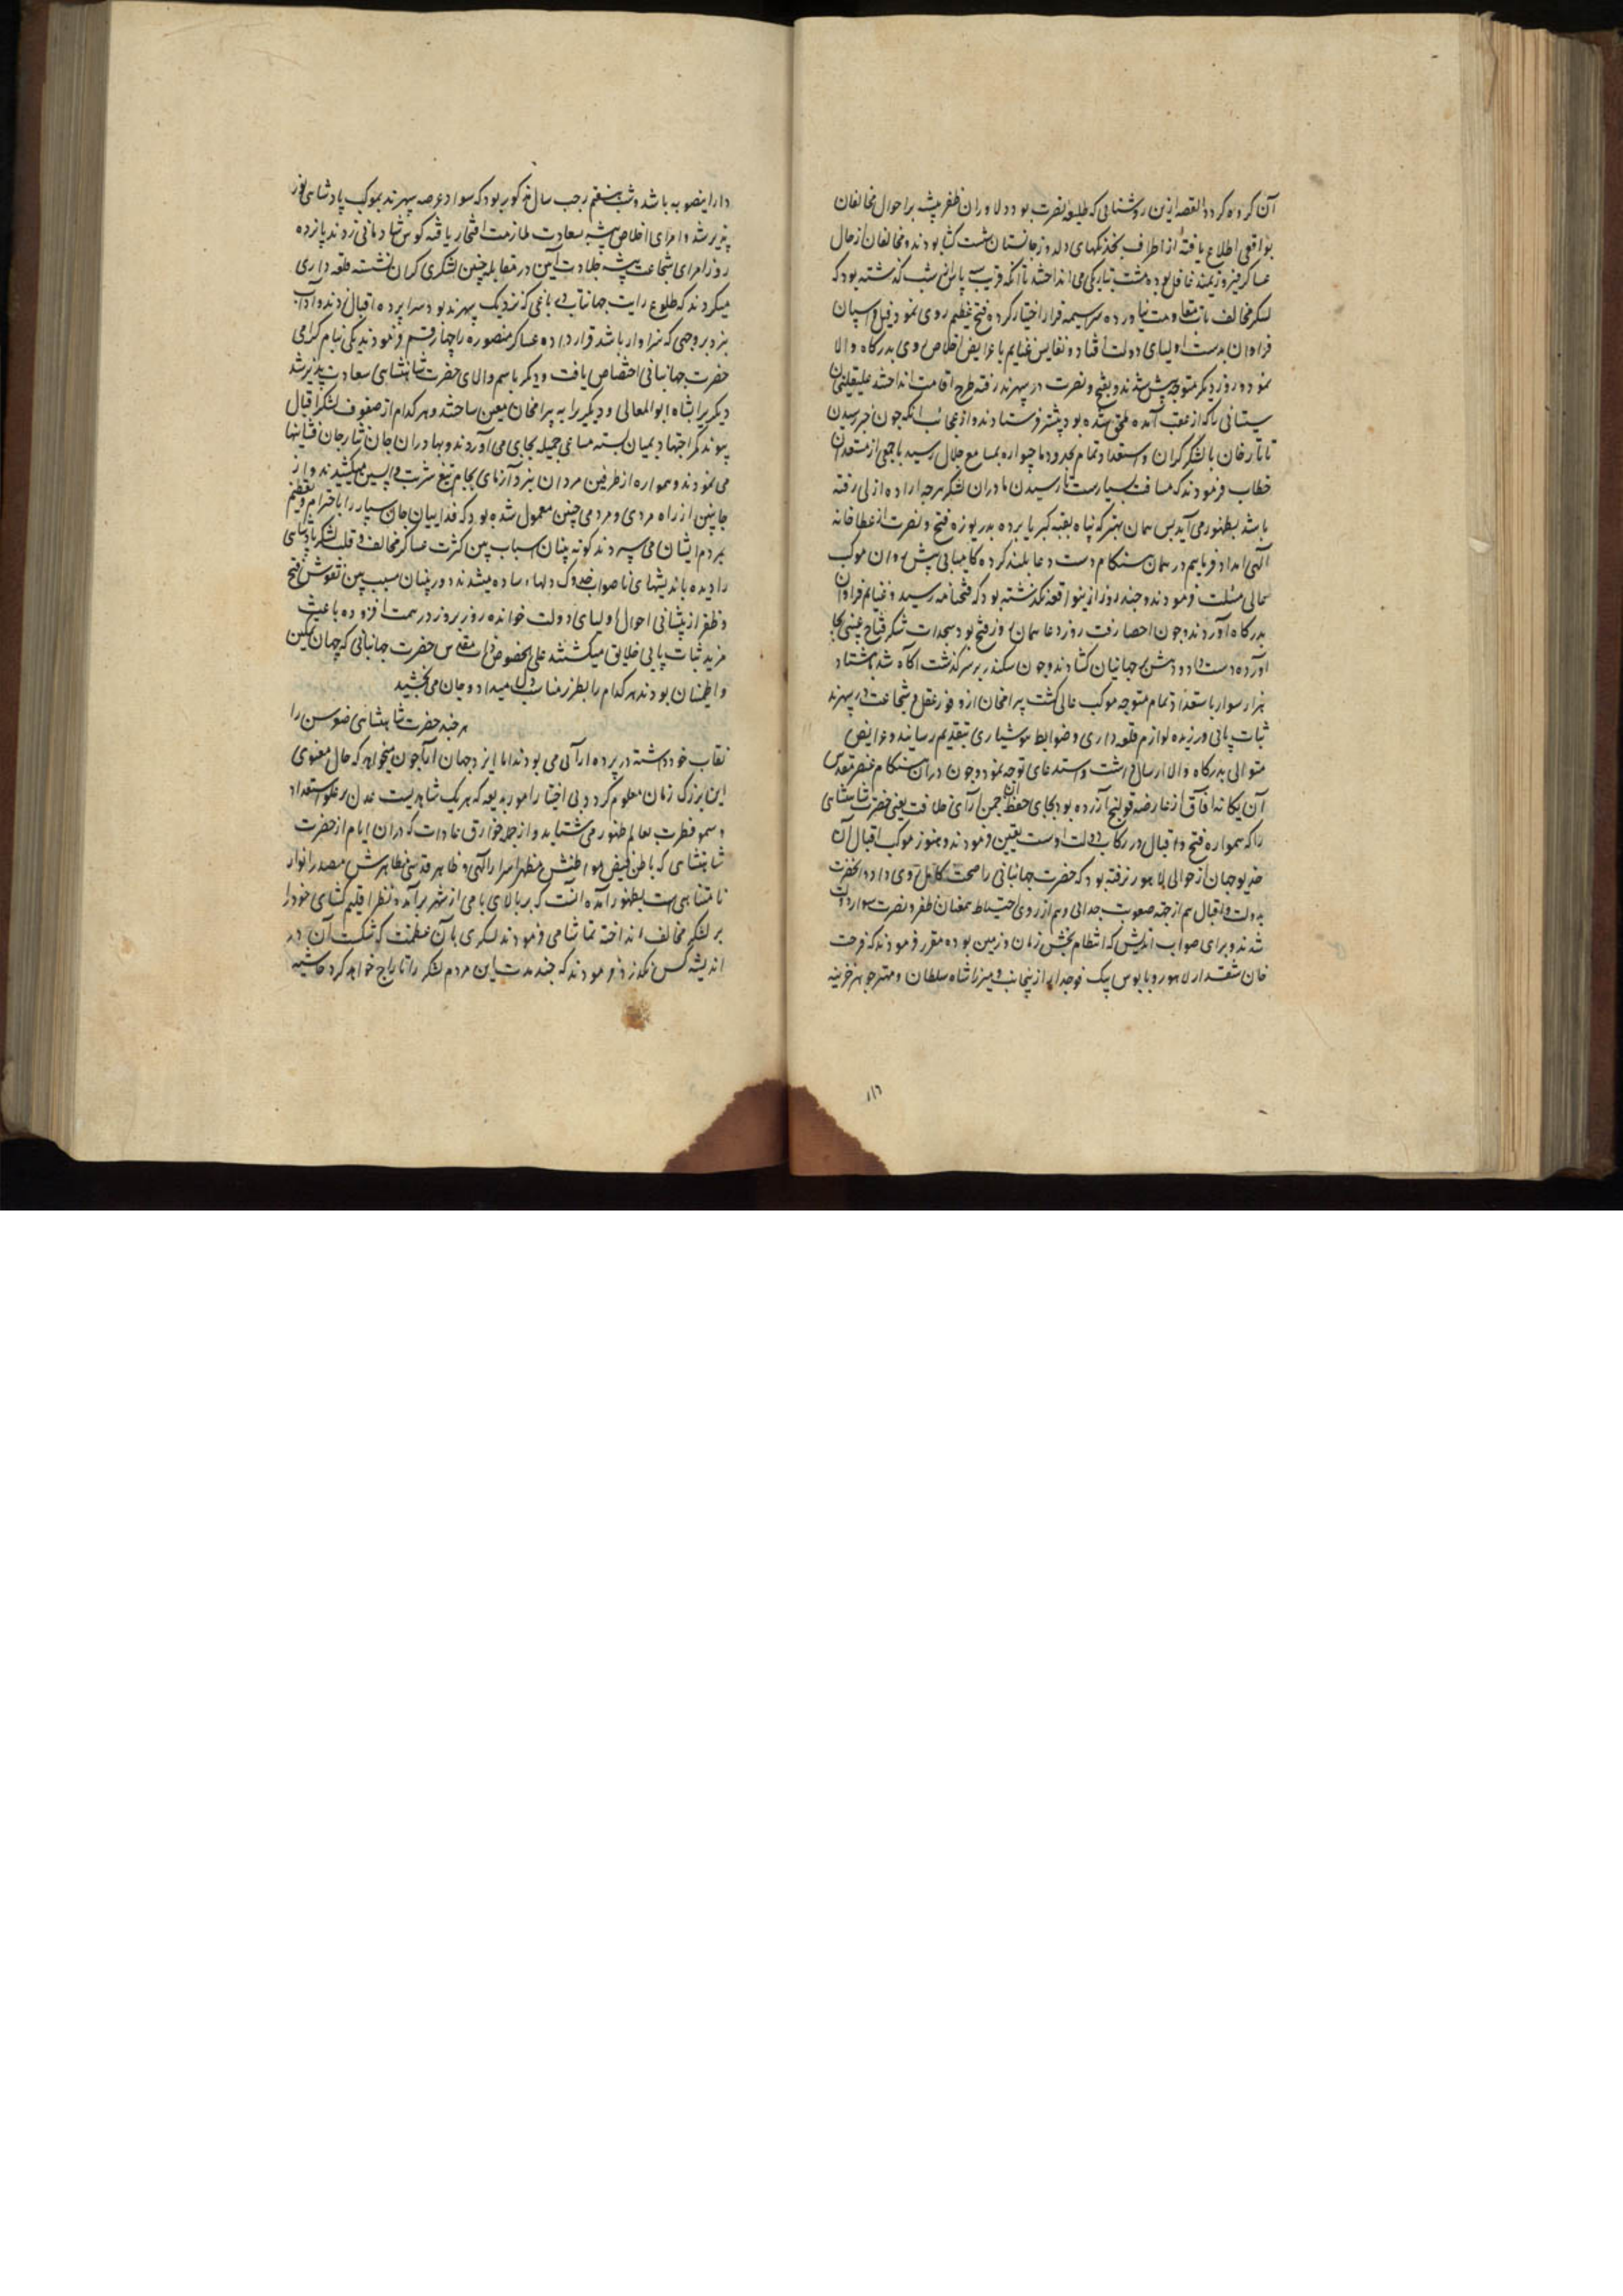 آن کرده کردد القصه ازین روشنایی که طلیعهٔ نصرت بود دلاوران ظفر پیشه بر احوال مخالفان
بواقعی اطلاع یافته از اطراف بخدنکهای دلدوز جانستان شست کشا بودند و مخالفان از حال
عساکر فیروزیمند غافل بوده مشت بتاریکی می انداختند تا آنکه قریب پاس از شب کذشته بود که
لشکر مخالف تاب مقاومت نیاورده سراسیمه فرار اختیار کرده فتح عظیم روی نمود و فیل و اسپان
فراوان بدست اولیای دولت افتاد و نفایس غنایم با عرایض اخلاص روی بدرکاه والا
نمود و روز دیکر متوجه پیش شدند و بفتح و نصرت در سهرند رفته طرح اقامت انداختند علیقلیخان
سیستانی را که از عقب آمده ملحق شده بود پیشتر فرستادند و از عجائب آنکه چون خبر رسیدن
تاتار خان با لشکر کران و استعداد تمام بحدود ماچیواره بمسامع جلال رسید با جمعی از مستعدان
خطاب فرمودند که مسافت بسیارست تا رسیدن ما دران لشکر هرچه اراده ازلی رفته
باشد بظهور می آید پس همان بهتر که پناه بقبه کبریا برده بدریوزه فتح و نصرت از عطا خانه
آلهی امداد فرماییم در همان هنکام دست دعا بلند کرده کامیابی پیش روان موکب
عالی مسئلت فرمودند و چند روز ازین واقعه نکذشته بود که فتحنامه رسید و غنایم فراوان
بدرکاه آوردند و چون احصا رفت روز دعا همان روز فتح بود سجدات شکر فتاح غیبی بجا
آورده دست داد و دهش بر جهانیان کشادند و چون سکندر بر سرکذشت آکاه شد با هشتاد
هزار سوار با ستعداد تمام متوجه موکب عالی کشت بیرامخان از وفور عقل و شجاعت در سهرند
ثبات پائی ورزیده لوازم قلعه داری و ضوابط هوشیاری بتقدیم رسانید و عرایض
متوالی بدرکاه والا ارسال داشت و استدعای توجه نمود و چون دران هنکام عنصر مقدس
آن یکانه آفاق از عارضه قولنج آزرده بود بجای حفظ آن چمن آرای خلافت یعنی حضرت شاهنشاهی
را که همواره فتح و اقبال در رکاب دولت اوست تعیین فرمودند و هنوز موکب اقبال آن
خدیو جهان از حوالی لاهور نرفته بود که حضرت جهانبانی را صحت کامل روی داد و آنحضرت
بدولت و اقبال هم از جهه صعوبت جدائی و هم از روی احتیاط بمعنان ظفر و نصرت سوار دولت
شدند و برای صواب اندیش که انتظام بخش زمان و زمین بوده مقرر فرمودند که فرحت
خان شقدار لاهور و بابوس بیک فوجدار از پنجاب و میرزا شاه سلطان و مهتر جوهر خزینه
دار اینصوبه باشد و شب هفتم رجب سال مذکور بود که سواد عرصه سهرند بموکب پادشاهی نور
پذیر شد و امرای اخلاص پیشه بسعادت ملازمت افتخار یافته کوس شادمانی زدند پانزده
روز امرای شجاعت پیشه جلادت آیین در مقابله چنین لشکری کران نشسته قلعه داری
میکردند که طلوع رایت جهانتاب در باغی که نزدیک سهرند بود سراپرده اقبال زدند و آداب
نبرد بروجهی که سزاوار باشد قرار داده عساکر منصوره را چهار قسم فرمودند یکی بنام کرامی
حضرت جهانبانی اختصاص یافت و دیکر باسم والای حضرت شاهنشاهی سعادت پذیر شد
دیکریرا بشاه ابوالمعالی و دیکیر را به بیرامخان معین ساختند و هر کدام از صفوف لشکر اقبال
پیوند کمر اجتهاد بمیان بسته مساعی جمیله بجای می آوردند و بهادران جان نثار جان فشانیها
می نمودند و همواره از طرفین مردان نبرد آزمای بجام تیغ شربت واپسین میکشیدند و از
جانبین از راه مردی و مردمی چنین معمول شده بود که فداییان جان سپار را با حترام و تعظیم
بمردم ایشان می سپردند کوته بینان اسباب بین کثرت عساکر مخالف و قلت لشکر پادشاهی
را دیده باندیشهای ناصواب خدوک دلهاء ساده میشدند و دوربینان سبب بین نقوش فتح
و ظفر از پیشانی احوال اولیای دولت خوانده روز بروز در همت افزوده باعث
مزید ثبات پایی خلایق میکشتند علی الخصوص ذات مقدس حضرت جهانبانی که جهان تمکین
و اطمنان بودند هر کدام را بطرز مناسب دل میداد و جان می بخشید
هرچند حضرت شاهنشاهی خویشتن را
نقاب خود داشته در پرده آرائی می بودند اما ایزد جهان آرا چون میخواهد که حال معنوی
این بزرک زمان معلوم کردد بی اختیار امور بدیعه که هریک شاهدیست عدل بر علو استعداد
و سمو فطرت بعالم ظهور می شتابد و از جمله خوارق عادات که دران ایام از حضرت
شاهنشاهی که باطن فیض مواطنش مظهر اسرار الهی و ظاهر قدسی مظاهرش مصدر انوار
نامتناهی است بظهور آمده آنست که بر بالای بامی از شهر برآمده نظر اقلیم کشای خود را
بر لشکر مخالف انداخته تماشا می فرمودند لشکری بآن عظمت که شکست آن در
اندیشه کس نکذرد فرمودند که چند مدت این مردم لشکر را تاراج خواهد کرد حاشیه